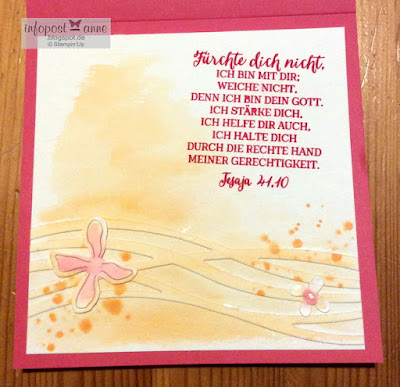 infopost anne
.blogspot.de
© Stampin'Up
Fürchte dich nicht,
ICH BIN MIT DIR;
WEICHE NICHT,
DENN ICH BIN DEIN GOTT.
ICH STÄRKE DICH,
ICH HELFE DIR AUCH,
ICH HALTE DICH
DURCH DIE RECHTE HAND
MEINER GERECHTIGKEIT.
Jesaja 41,10